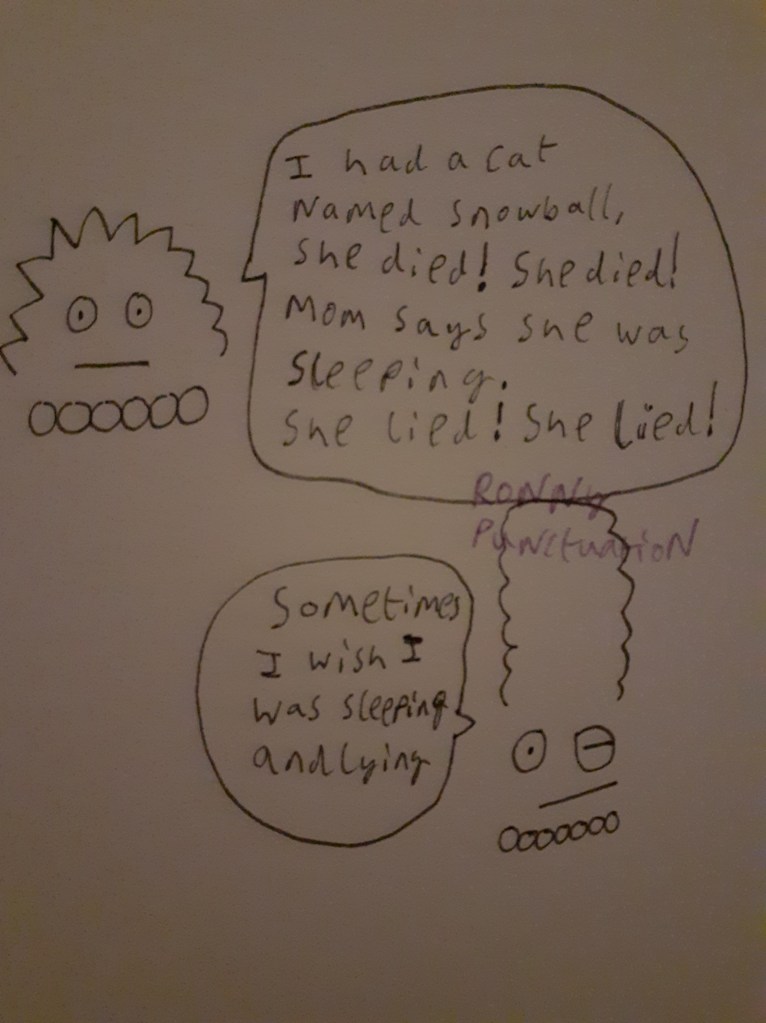 I had a cat
Named Snowball,
She died! She died!
Mom says she was
Sleeping.
She lied! She lied!
RONNy
PUNCtuatioN
Sometimes
I wish I
was sleeping
and lying